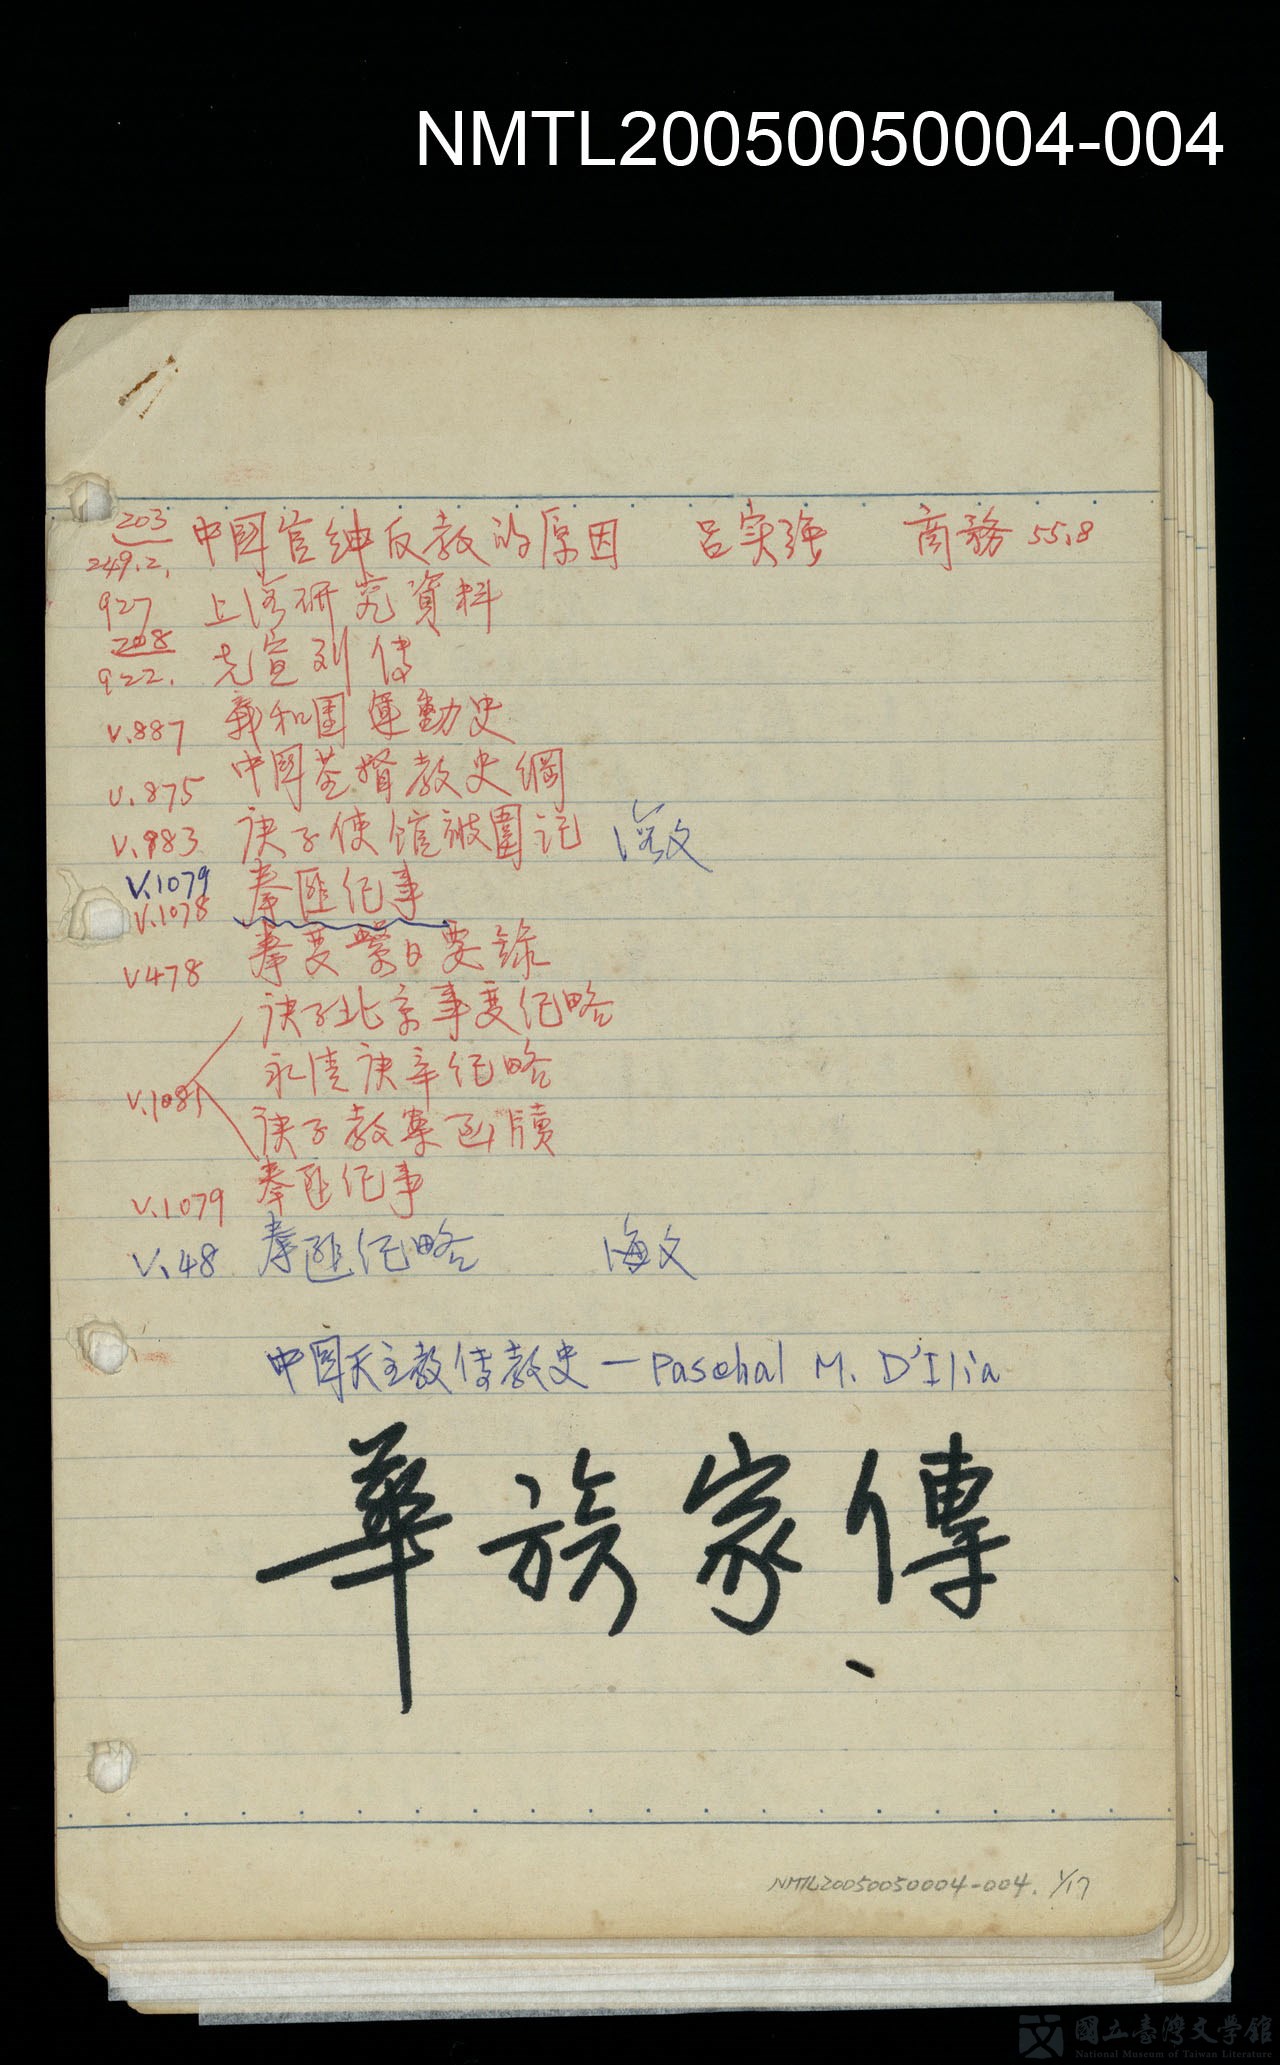 NMTL20050050004-004
203
249.2. 中國官紳反教的原因 呂实強 商務 55.8
927 上海研究資料
208
922. 先宣列傳
V.887 義和團運動史
V.875 中國基督教史綱
V.883 庚子使館被圍記 海文
V.1079 拳匪紀事
V.1078
V478 拳变繫日要録
庚子北京事变紀略
V.1081 永清庚辛紀略
庚子教案函牘
V.1079 拳匪紀事
V.48 拳匪紀略 海文
中国天主教传教史 — Paschal M. D'Ilia
華族家傳、
NMTL20050050004-004. 1/17
國立臺灣文學館
National Museum of Taiwan Literature